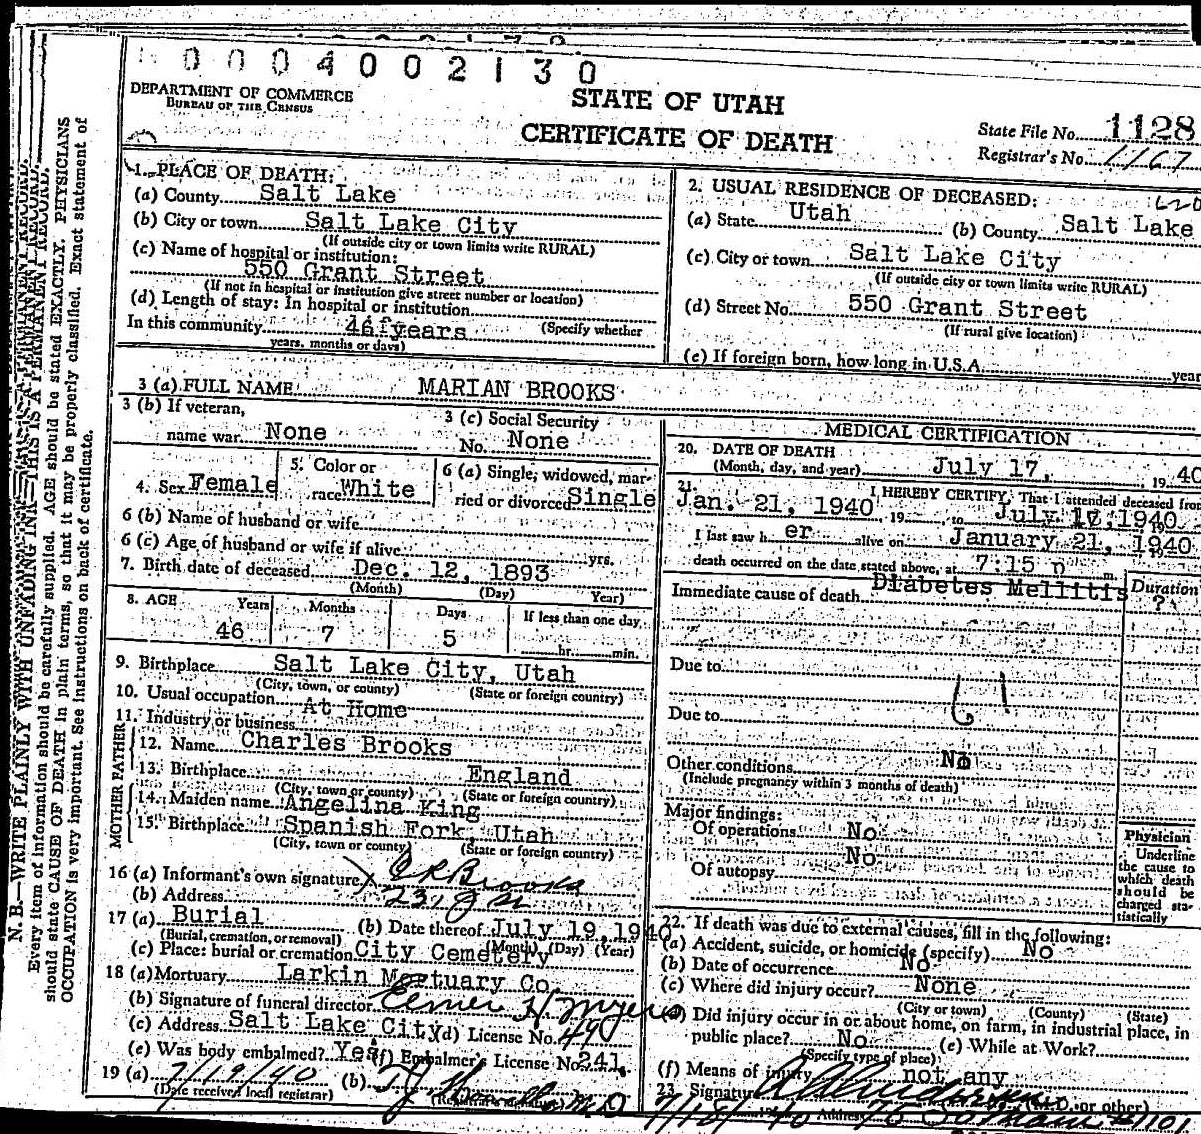 0004002130
DEPARTMENT OF COMMERCE
BUREAU OF THE CENSUS
STATE OF UTAH
CERTIFICATE OF DEATH
State File No. 1128
Registrar's No. 1167
1. PLACE OF DEATH:
(a) County Salt Lake
(b) City or town Salt Lake City
(If outside city or town limits write RURAL)
(c) Name of hospital or institution:
550 Grant Street
(If not in hospital or institution give street number or location)
(d) Length of stay: In hospital or institution
In this community 46 years (Specify whether
years, months or days)
2. USUAL RESIDENCE OF DECEASED:
(a) State Utah (b) County Salt Lake
(c) City or town Salt Lake City
(If outside city or town limits write RURAL)
(d) Street No. 550 Grant Street
(If rural give location)
(e) If foreign born, how long in U.S.A. year
3 (a) FULL NAME MARIAN BROOKS
3 (b) If veteran,
name war None
3 (c) Social Security
No. None
4. Sex Female
5. Color or
race White
6 (a) Single, widowed, mar-
ried or divorced Single
6 (b) Name of husband or wife
6 (c) Age of husband or wife if alive yrs.
7. Birth date of deceased Dec. 12, 1893
(Month) (Day) Year)
8. AGE Years Months Days If less than one day
46 7 5 hr. min.
9. Birthplace Salt Lake City, Utah
(City, town, or county) (State or foreign country)
10. Usual occupation At Home
11. Industry or business
FATHER
12. Name Charles Brooks
13. Birthplace England
(City, town or county) (State or foreign country)
MOTHER
14. Maiden name Angelina King
15. Birthplace Spanish Fork, Utah
(City, town or county) (State or foreign country)
16 (a) Informant's own signature Brooks
(b) Address
17 (a) Burial (b) Date thereof July 19 1940
(Burial, cremation, or removal) (Month) (Day) (Year)
(c) Place: burial or cremation City Cemetery
18 (a) Mortuary Larkin Mortuary Co.
(b) Signature of funeral director
(c) Address Salt Lake City (d) License No. 490
(e) Was body embalmed? Yes (f) Embalmer's License No. 241
19 (a) 7/19/40 (b)
(Date received local registrar) (Registrar's signature)
MEDICAL CERTIFICATION
20. DATE OF DEATH
(Month, day, and year) July 17, 1940
21. I HEREBY CERTIFY, That I attended deceased from
Jan. 21, 1940, 19 to July 17, 1940
I last saw h er alive on January 21, 1940
death occurred on the date stated above, at 7:15 p m.
Immediate cause of death Diabetes Mellitis
Duration
?
Due to
Due to
Other conditions No
(Include pregnancy within 3 months of death)
Major findings:
Of operations No
No
Of autopsy
Physician
Underline
the cause to
which death
should be
charged sta-
tistically
22. If death was due to external causes, fill in the following:
(a) Accident, suicide, or homicide (specify) No
(b) Date of occurrence No
(c) Where did injury occur? None
(City or town) (County) (State)
(d) Did injury occur in or about home, on farm, in industrial place, in
public place? No (e) While at Work?
(Specify type of place)
(f) Means of injury not any
23. Signature (M.D. or other)
7/18/40 Address
N. B.—WRITE PLAINLY WITH UNFADING INK—THIS IS A PERMANENT RECORD.
Every item of information should be carefully supplied. AGE should be stated EXACTLY. PHYSICIANS
should state CAUSE OF DEATH in plain terms, so that it may be properly classified. Exact statement of
OCCUPATION is very important. See instructions on back of certificate.